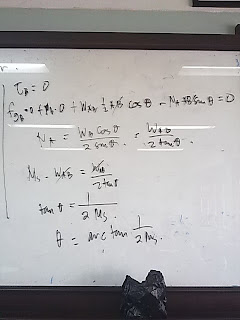 τ_B = 0
f_gB · 0 + N_B · 0 + W_AB · 1/2 AB cos θ − N_A AB sin θ = 0
N_A = W_AB cos θ / 2 sin θ = W_AB / 2 tan θ
M_s · W_AB = W_AB / 2 tan θ
tan θ = 1 / 2 M_s .
θ = arc tan 1 / 2 M_s .